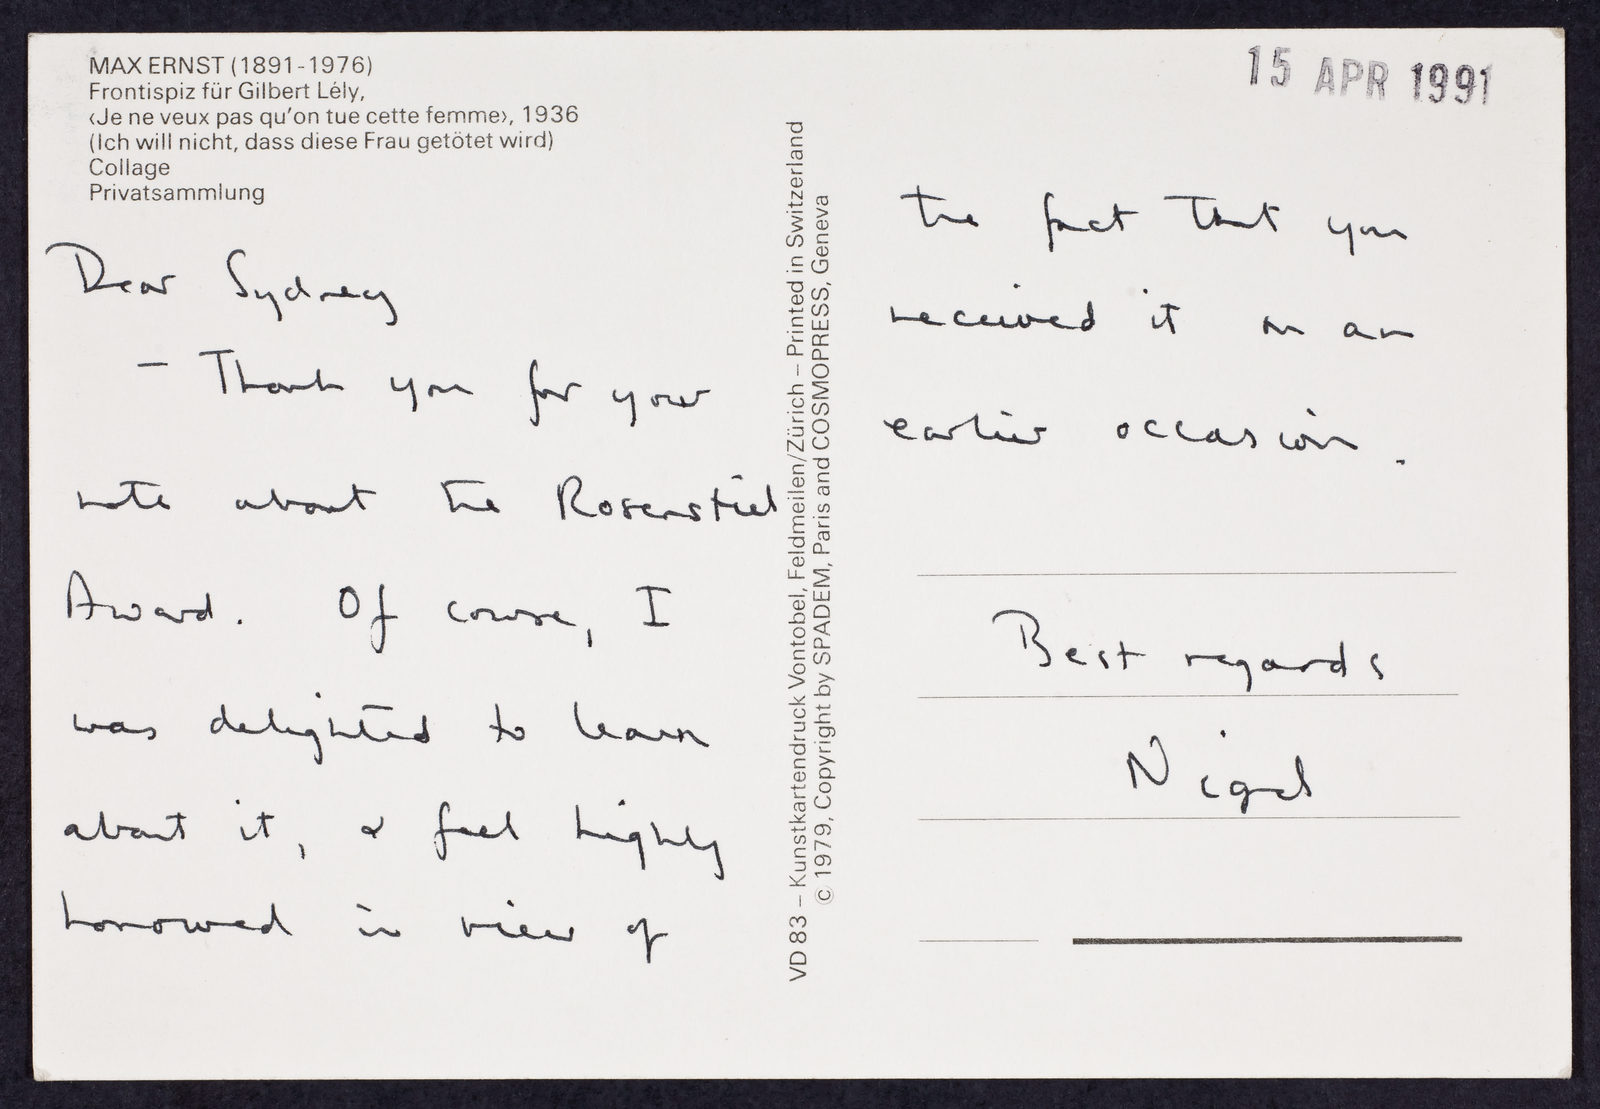 MAX ERNST (1891-1976)
Frontispiz für Gilbert Lély,
‹Je ne veux pas qu'on tue cette femme›, 1936
(Ich will nicht, dass diese Frau getötet wird)
Collage
Privatsammlung
Dear Sydney
– Thank you for your
note about the Rosenstiel
Award. Of course, I
was delighted to learn
about it, & feel highly
honoured in view of
VD 83 – Kunstkartendruck Vontobel, Feldmeilen/Zürich – Printed in Switzerland
© 1979, Copyright by SPADEM, Paris and COSMOPRESS, Geneva
15 APR 1991
the fact that you
received it on an
earlier occasion.
Best regards
Nigel